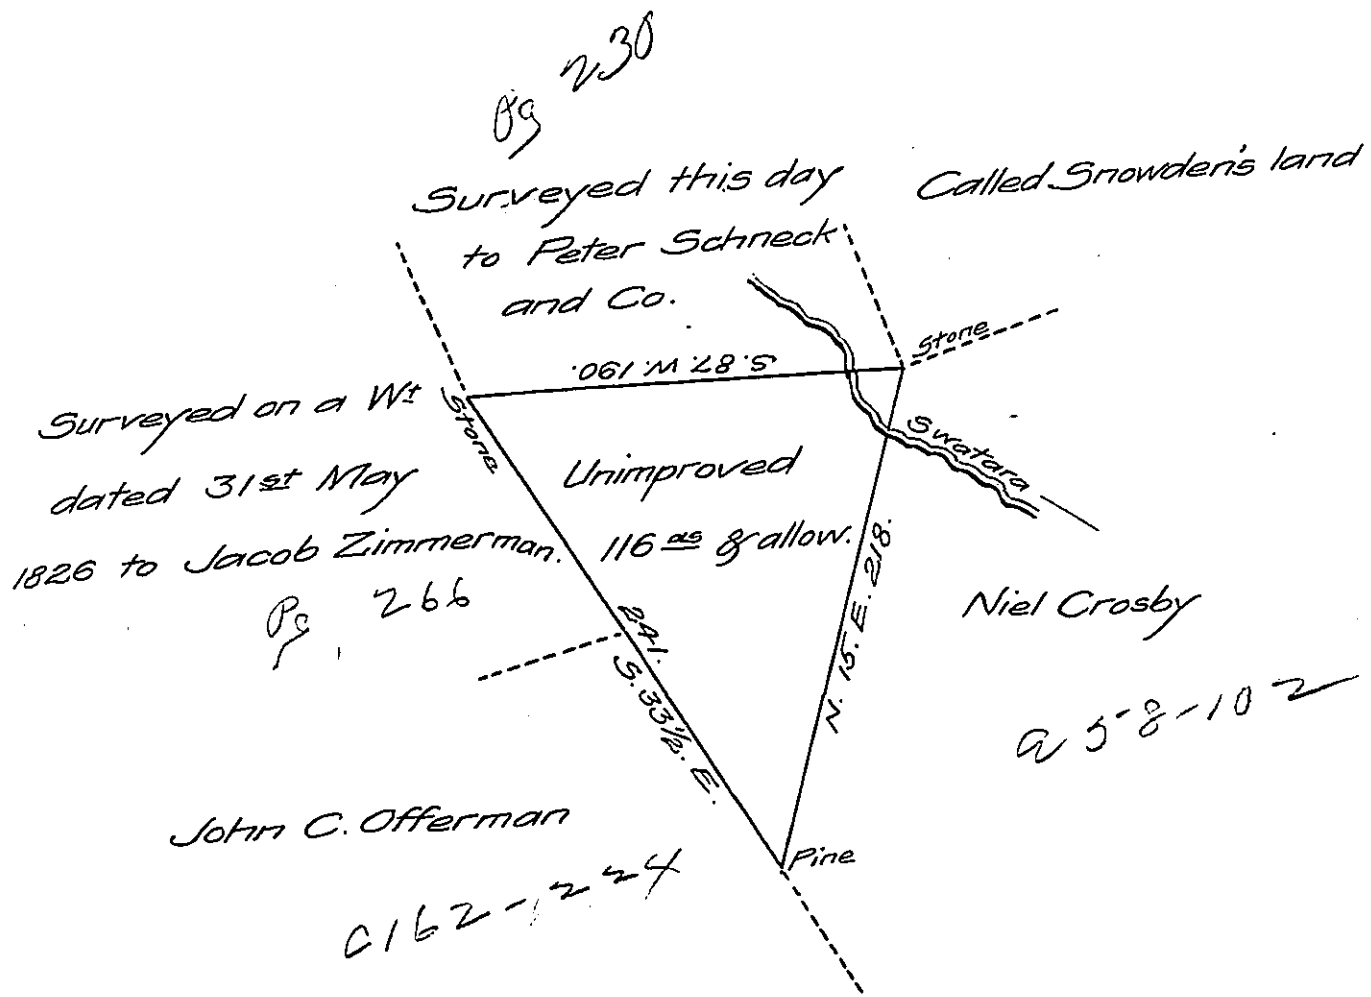 Pg 230
Surveyed this day
to Peter Schneck
and Co.
Called Snowden's land
Stone
S. 87. W. 190.
Surveyed on a Wt
dated 31st May
1826 to Jacob Zimmerman.
Pg. 266
Stone
Unimproved
116 as & allow.
Swatara
N. 15. E. 218.
Niel Crosby
a 58-102
241.
S. 33½. E.
John C. Offerman
C162-224
Pine